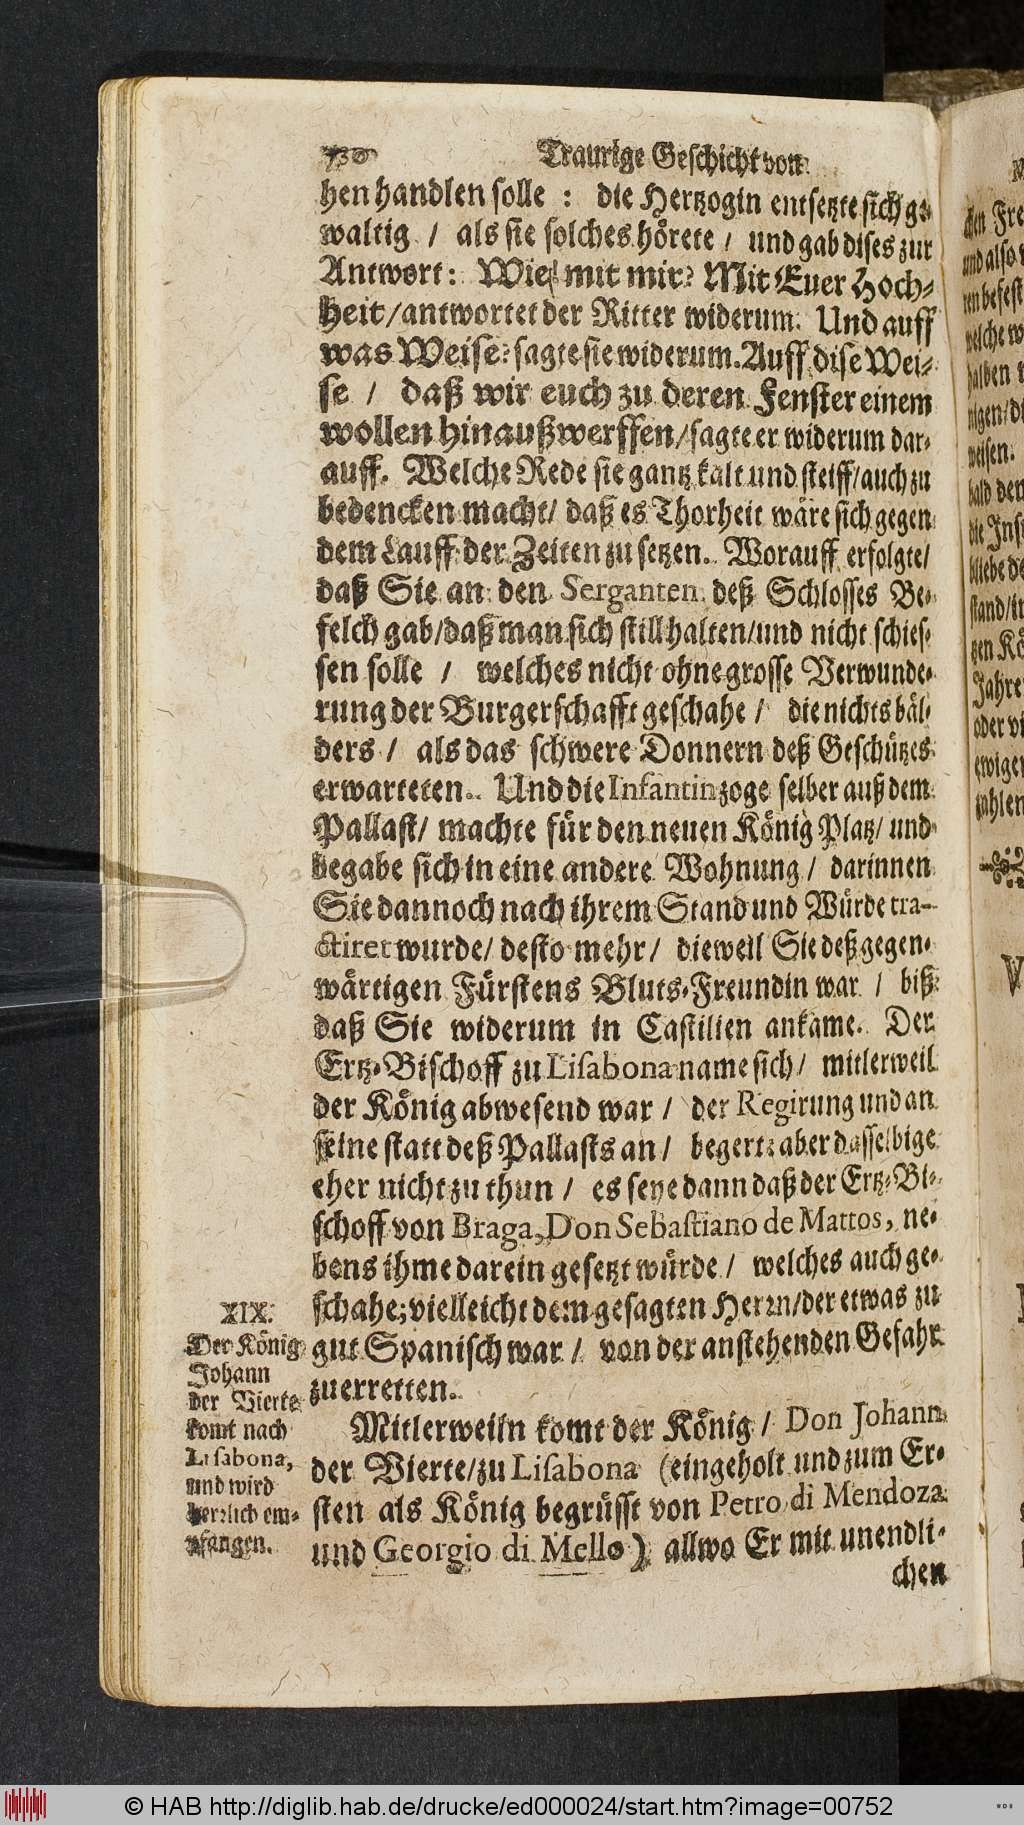 730 Traurige Geschicht von
hen handlen solle : die Hertzogin entsetzte sich ge-
waltig / als sie solches hörete / und gab dises zur
Antwort: Wie mit mir? Mit Euer Hoch-
heit/antwortet der Ritter widerum. Und auff
was Weise? sagte sie widerum. Auff dise Wei-
se / daß wir euch zu deren Fenster einem
wollen hinaußwerffen/sagte er widerum dar-
auff. Welche Rede sie gantz kalt und steiff/auch zu
bedencken macht/ daß es Thorheit wäre sich gegen
dem Lauff der Zeiten zu setzen. Worauff erfolgte/
daß Sie an den Serganten deß Schlosses Be-
felch gab/daß man sich still halten/und nicht schies-
sen solle / welches nicht ohne grosse Verwunde-
rung der Burgerschafft geschahe / die nichts bäl-
ders / als das schwere Donnern deß Geschützes
erwarteten. Und die Infantin zoge selber auß dem
Pallast/ machte für den neuen König Platz/ und
begabe sich in eine andere Wohnung / darinnen
Sie dannoch nach ihrem Stand und Würde tra-
ctiret wurde/ desto mehr/ dieweil Sie deß gegen-
wärtigen Fürstens Bluts-Freundin war / biß
daß Sie widerum in Castilien ankame. Der
Ertz-Bischoff zu Lisabona name sich / mitlerweil
der König abwesend war / der Regirung und an
seine statt deß Pallasts an / begerte aber dasselbige
eher nicht zu thun / es seye dann daß der Ertz-Bi-
schoff von Braga, Don Sebastiano de Mattos, ne-
bens ihme darein gesetzt würde / welches auch ge-
schahe; vielleicht dem gesagten Herrn/der etwas zu
gut Spanisch war / von der anstehenden Gefahr
zu erretten.
XIX.
Der König
Johann
der Vierte
komt nach
Lisabona,
und wird
herrlich em-
pfangen.
Mitlerweiln komt der König / Don Johann
der Vierte/zu Lisabona (eingeholt und zum Er-
sten als König begrüsst von Petro di Mendoza
und Georgio di Mello) allwo Er mit unendli-
chen
© HAB http://diglib.hab.de/drucke/ed000024/start.htm?image=00752